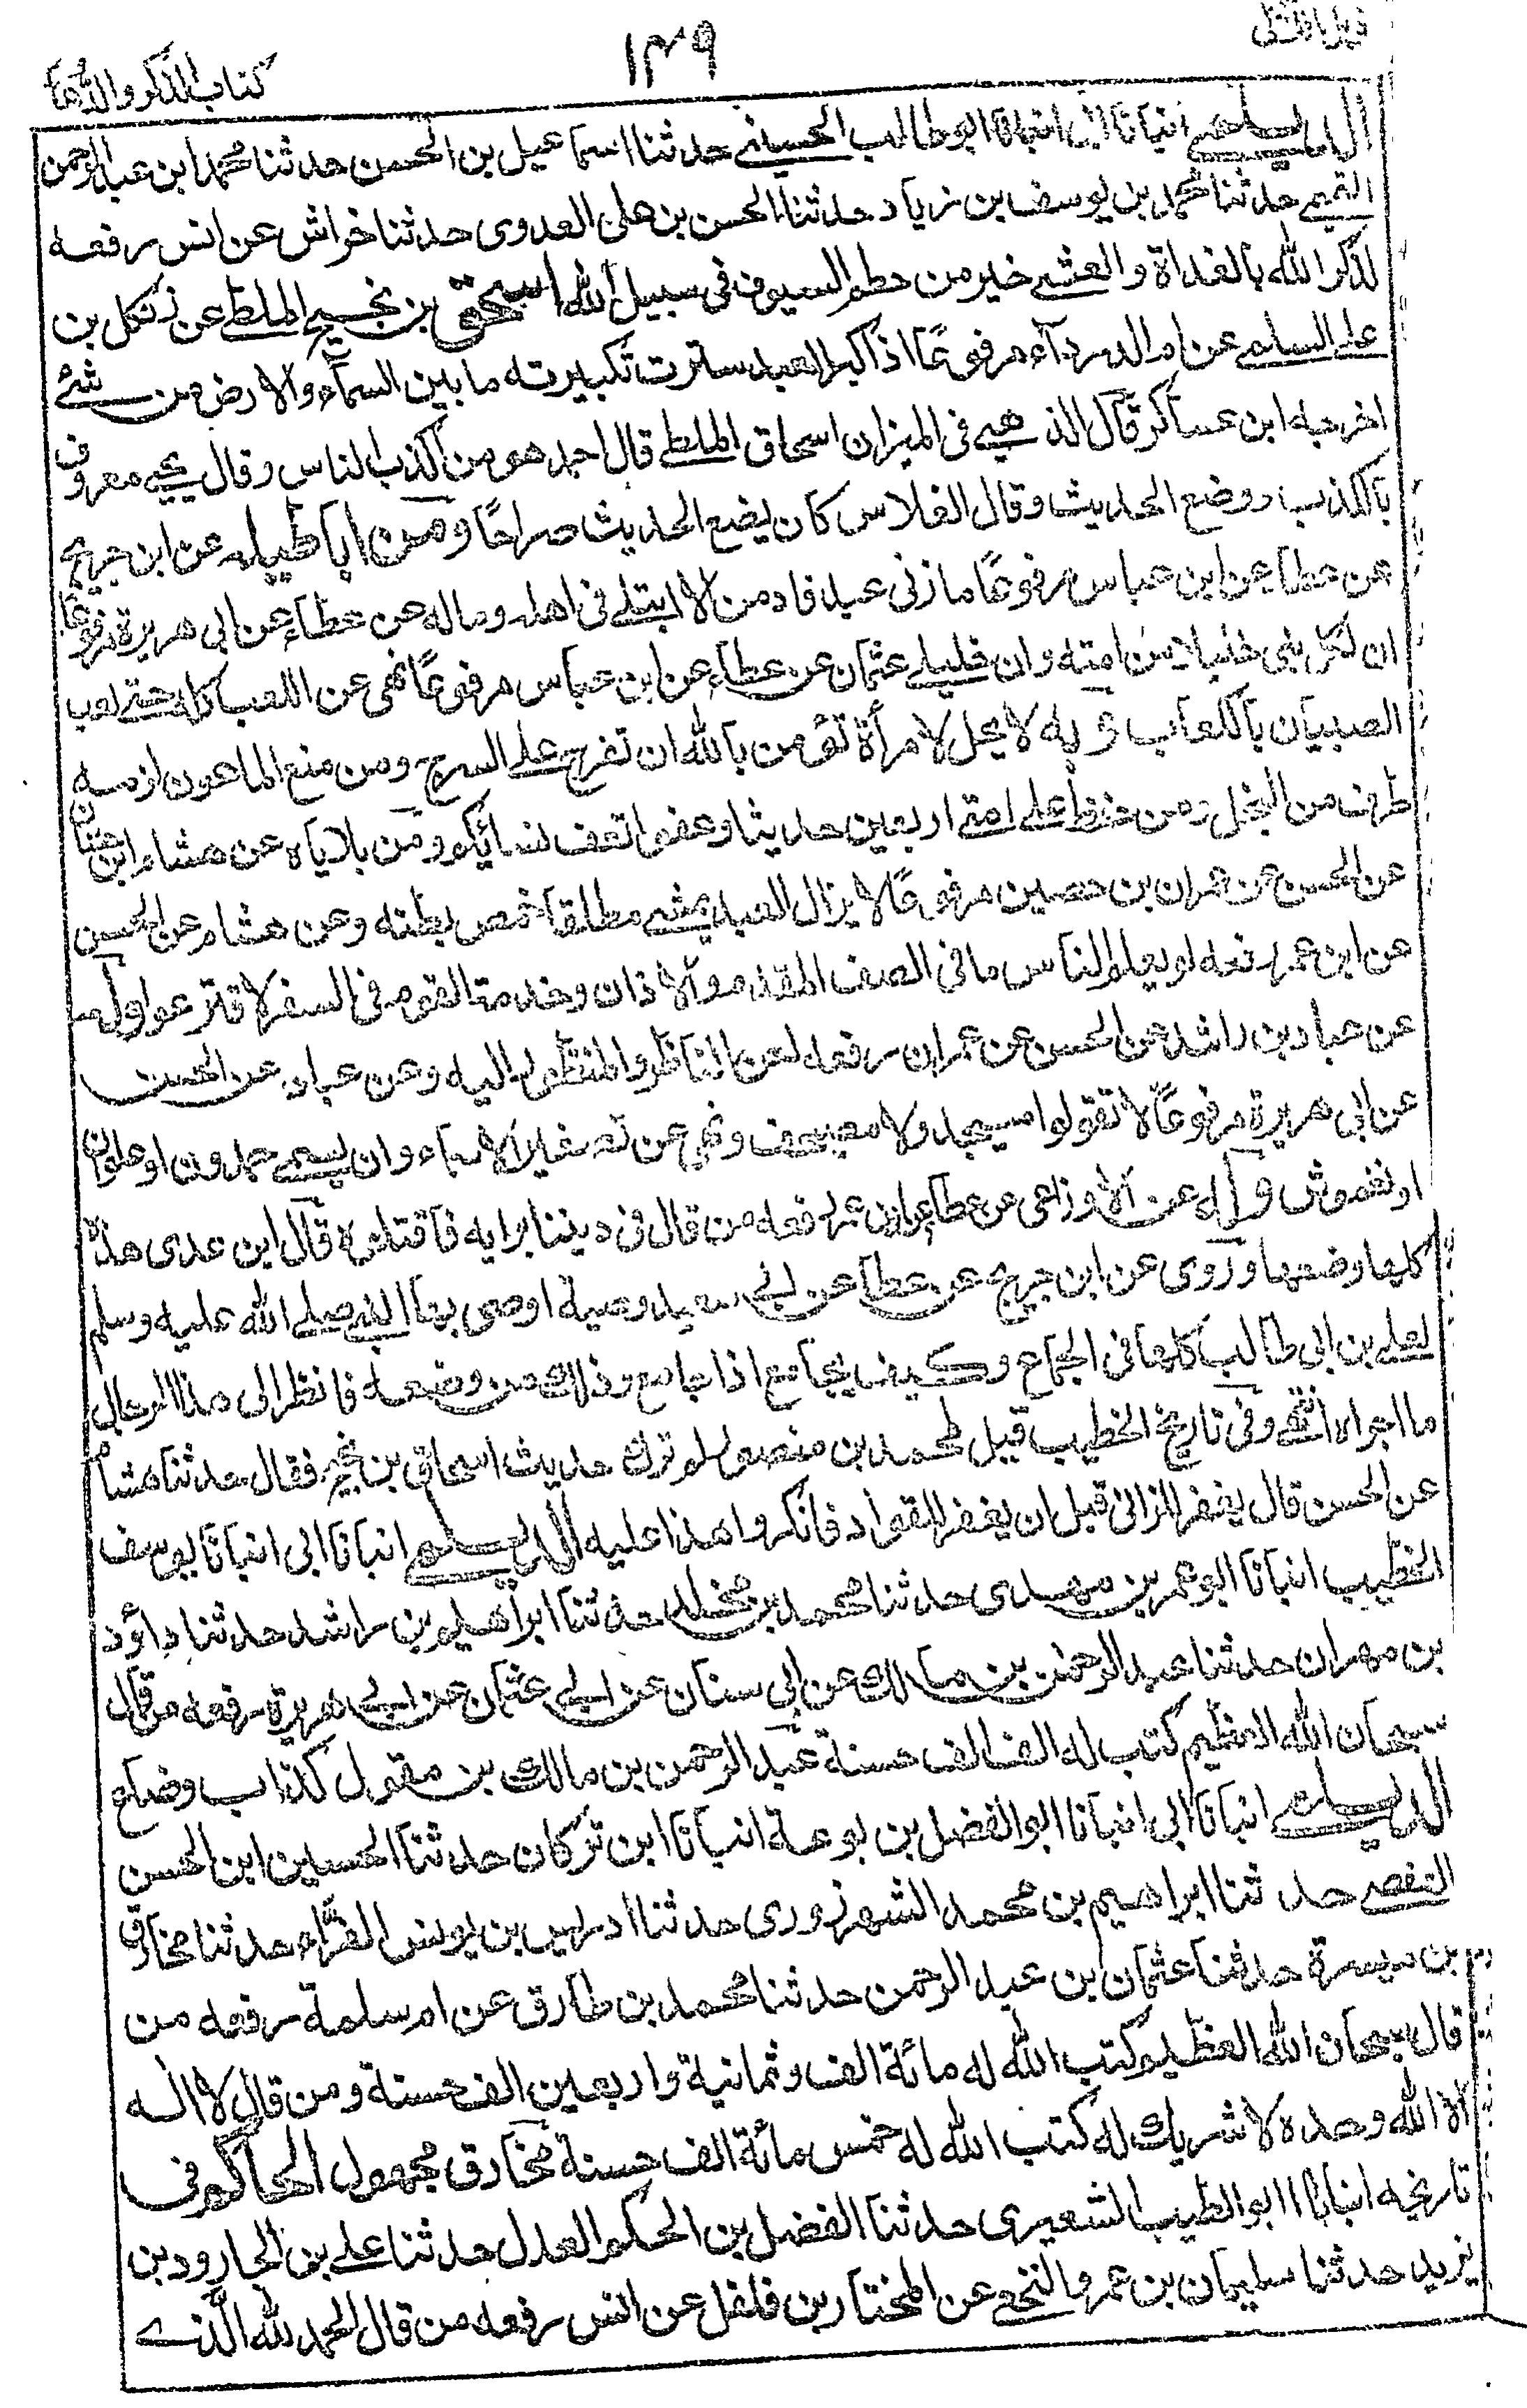 ذيل اللآلي
١٤٩
كتاب الذكر والدعاء
الديلمي انبانا ابي انبانا ابو طالب الحسيني حدثنا اسماعيل بن الحسن حدثنا محمد ابن عبد الرحمن
التميمي حدثنا محمد بن يوسف بن زياد حدثنا الحسن بن علي العدوي حدثنا خراش عن انس رفعه
لذكر الله بالغداة والعشي خير من حطم السيوف في سبيل الله اسحق بن نجيح الملطي عن بن
علي السلمي عن ام الدرداء مرفوعًا اذا كبر العبد سترت تكبيرته ما بين السمآء والارض من شئ
اخرجه ابن عساكر قال الذهبي في الميزان اسحاق الملطي قال احمد هو من اكذب الناس وقال يحيى معروف
بالكذب ووضع الحديث وقال الفلاس كان يضع الحديث صراحًا ومن اباطيله عن ابن جريج
عن عطاء عن ابن عباس مرفوعًا ما زنى عبد فادمن الا ابتلي في اهله وماله عن عطاء عن ابي هريرة مرفوعًا
ان لكل نبي خليلا من امته وان خليلي عثمان عن عطاء عن ابن عباس مرفوعًا نهى عن اللعب كله حتى لعب
الصبيان بالكعاب وبه لا يحل لامرأة تؤمن بالله ان تفرج على السرج ومن منع الماعون لزمه
طرف من البخل ومن حفظ على امتي اربعين حديثا وعفوا تعف نسائكم ومن بلاياه عن هشام ابن حسان
عن الحسن عن عمران بن حصين مرفوعًا لا يزال العبد يمشي مطلقا خمص بطنه وعن هشام عن الحسن
عن ابن عمر رفعه لو يعلم الناس ما في الصف المقدم والاذان وخدمة القوم في السفر لاقترعوا وله
عن عباد بن راشد عن الحسن عن عمران رفعه لعن الناظر والمنظور اليه وعن عباد عن الحسن
عن ابي هريرة مرفوعًا لا تقولوا مسيجد ولا مصيحف ونهى عن تصغير الاسماء وان يسمى حمدون او علوان
او نغموش وله عن الاوزاعي عن عطاء عن ابن عمر رفعه من قال في ديننا برايه فاقتلوه قال ابن عدي هذه
كلها وضعها وروى عن ابن جريج عن عطاء عن ابي سعيد وصية اوصى بها النبي صلى الله عليه وسلم
لعلي بن ابي طالب كلها في الجماع وكيف يجامع اذا جامع وذلك من وضعه فانظر الى هذا الرجال
ما اجراه انتهى وفي تاريخ الخطيب قيل لمحمد بن منصور لم ترك حديث اسحاق بن نجيح فقال حدثنا هشام
عن الحسن قال يغفر للزاني قبل ان يغفر للقواد فانكروا هذا عليه الديلمي انبانا ابي انبانا يوسف
الخطيب انبانا ابو عمر بن مهدي حدثنا محمد بن مخلد حدثنا ابراهيم بن راشد حدثنا داؤد
بن مهران حدثنا عبد الرحمن بن مالك عن ابي سنان عن ابي عثمان عن ابي هريرة رفعه من قال
سبحان الله العظيم كتب له الف الف حسنة عبد الرحمن بن مالك بن مقول كذاب وضاع
الديلمي انبانا ابي انبانا ابو الفضل بن بوعة انبانا ابن تركان حدثنا الحسين ابن الحسن
حدثنا ابراهيم بن محمد الشهرزوري حدثنا ادريس بن يونس الفرّاء حدثنا مخارق
بن ميسرة حدثنا عثمان ابن عبد الرحمن حدثنا محمد بن طارق عن ام سلمة رفعه من
قال سبحان الله العظيم كتب الله له مائة الف وثمانية واربعين الف حسنة ومن قال لا اله
الا الله وحده لا شريك له كتب الله له خمس مائة الف حسنة مخارق مجهول الحاكم في
تاريخه انبانا ابو الطيب الشعيري حدثنا الفضل بن الحكم العدل حدثنا علي بن الجارود بن
يزيد حدثنا سليمان بن عمرو النخعي عن المختار بن فلفل عن انس رفعه من قال الحمد لله الذے